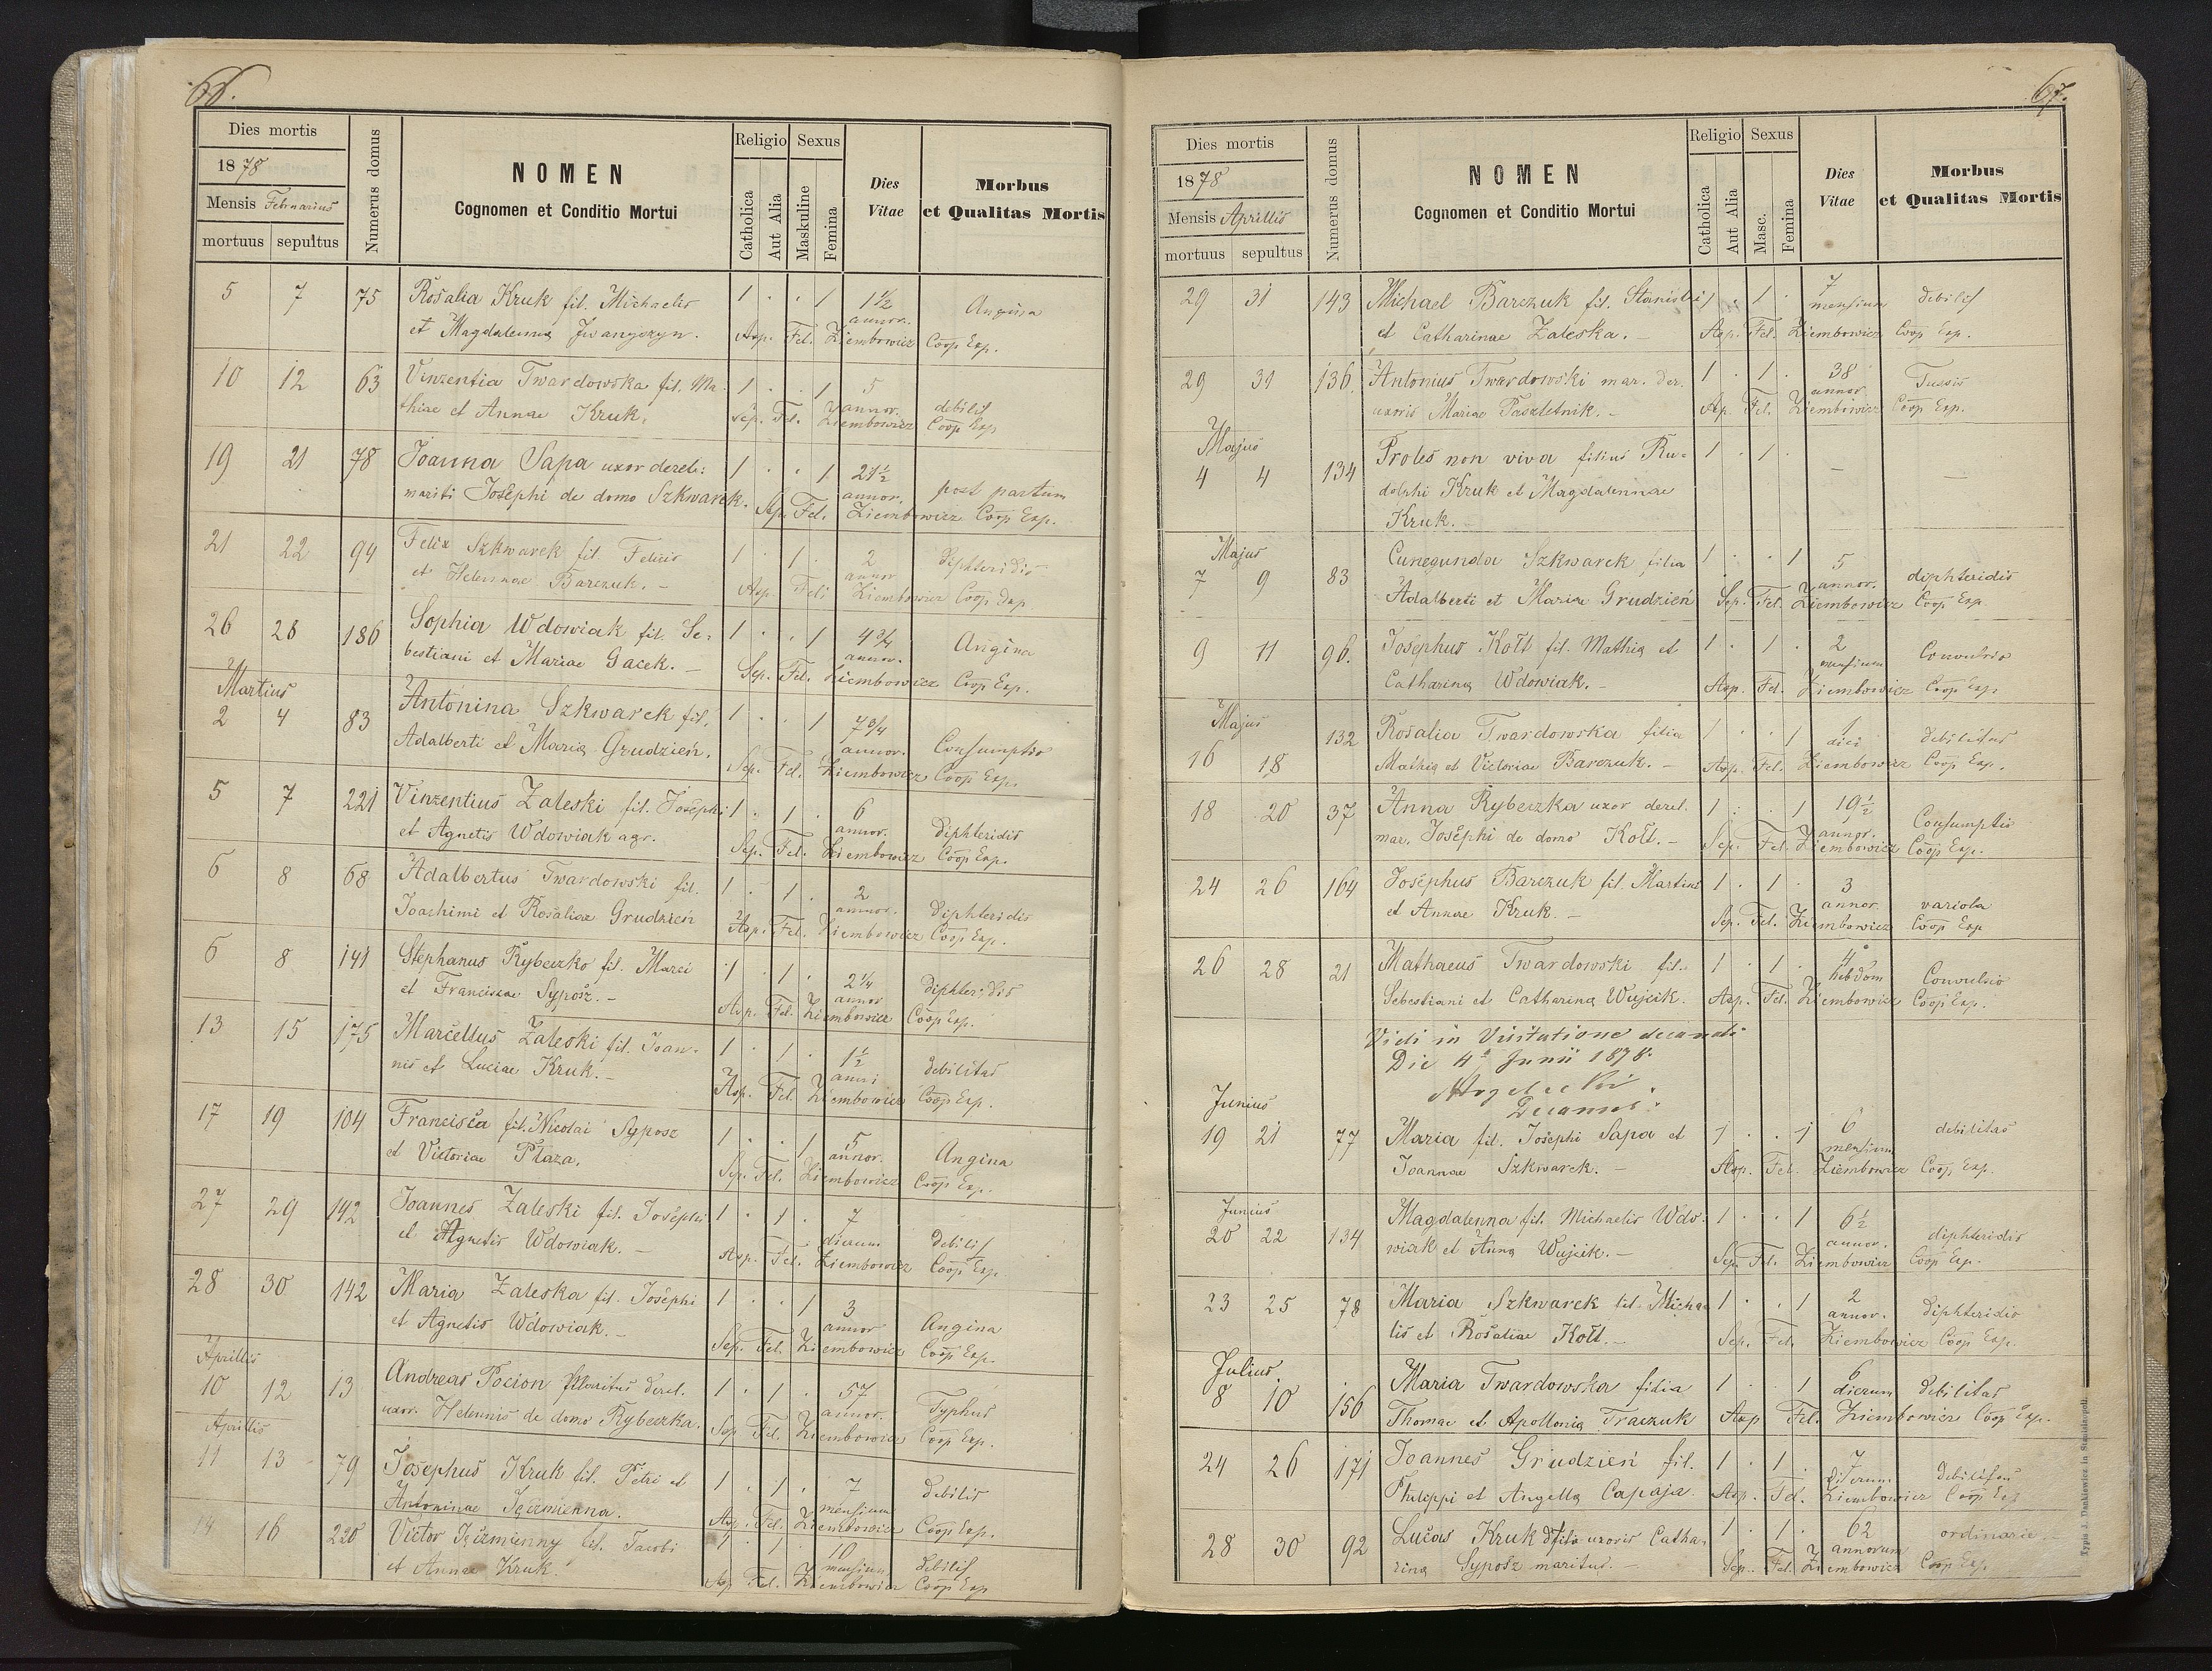 66.
Dies mortis
1878
Mensis Februarius
mortuus sepultus
Numerus domus
NOMEN
Cognomen et Conditio Mortui
Religio
Catholica
Aut Alia
Sexus
Maskuline
Femina
Dies Vitae
Morbus et Qualitas Mortis
5 7 75 Rosalia Kruk fil. Michaelis 1 . . 1 1½ annor. Angina
et Magdalenna Iwanyczyn. Asp. Fel. Ziembowicz Coop Exp.
10 12 63 Vinzentia Twardowska fil. Ma- 1 . . 1 5 annor. debilit
thiae et Annae Kruk. Sep. Fel. Ziembowicz Coop Exp
19 21 78 Joanna Sapa uxor derel: 1 . . 1 21½ annor. post partum
mariti Josephi de domo Szkwarek. Sep. Fel. Ziembowicz Coop Exp.
21 22 94 Felix Szkwarek fil. Felicis 1 . 1 . 2 annor diphteridis
et Helennae Barczuk. – Asp Feli Ziembowicz Coop Exp
26 28 186 Sophia Wdowiak fil. Se- 1 . . 1 4¾ annor. Angina
bestiani et Mariae Gacek. – Sep. Fel. Ziembowicz Coop Exp.
Martius
2 4 83 Antonina Szkwarek fil. 1 . . 1 7¾ annor. Consumptio
Adalberti et Maria Grudzień. Sep. Fel. Ziembowicz Coop Exp.
5 7 221 Vinzentius Zaleski fil. Josephi 1 . 1 . 6 annor. diphteridis
et Agnetis Wdowiak agr. Sep. Fel. Ziembowicz Coop Exp.
6 8 68 Adalbertus Twardowski fil. 1 . 1 . 2 annor. diphteridis
Joachimi et Rosaliae Grudzień Asp. Fel. Ziembowicz Coop Exp.
6 8 141 Stephanus Rybeczko fil. Marci 1 . 1 . 2¼ annor diphteridis
et Franciscae Syposz. – Asp. Fel. Ziembowicz Coop Exp.
13 15 175 Marcellus Zaleski fil. Joan- 1 . 1 . 1½ anni debilitas
nis et Luciae Kruk. – Asp. Fel. Ziembowicz Coop Exp.
17 19 104 Francisca fil. Nicolai Syposz 1 . . 1 5 annor. Angina
et Victoriae Płaza. Sep. Fel. Ziembowicz Coop Exp.
27 29 142 Joannes Zaleski fil. Josephi 1 . 1 . 7 dierum debilit
et Agnetis Wdowiak. – Asp. Fel. Ziembowicz Coop Exp.
28 30 142 Maria Zaleska fil. Josephi 1 . . 1 3 annor Angina
et Agnetis Wdowiak. – Sep. Fel. Ziembowicz Coop Exp.
Aprillis
10 12 13 Andreas Pocion Maritus derel. 1 . 1 . 57 annor. Typhus
uxor. Helennis de domo Rybeczka. Sep Fel. Ziembowicz Coop Exp.
Aprillis
11 13 79 Josephus Kruk fil. Petri et 1 . 1 . 7 mensium debilis
Antoninae Jęczmienna. Asp. Fel. Ziembowicz Coop Exp.
14 16 220 Victor Jęczmienny fil. Jacobi 1 . 1 . 10 mensium debilit
et Annae Kruk. Asp Fel. Ziembowicz Coop Exp
67.
Dies mortis
1878
Mensis Aprillis
mortuus sepultus
Numerus domus
NOMEN
Cognomen et Conditio Mortui
Religio
Catholica
Aut Alia
Sexus
Masc.
Femina
Dies Vitae
Morbus et Qualitas Mortis
29 31 143 Michael Barczuk fil. Stanislai 1 . 1 . 7 mensium debilit
et Catharinae Zaleska. – Asp. Fel. Ziembowicz Coop Exp.
29 31 136 Antonius Twardowski mar. der. 1 . 1 . 38 annor Tussis
uxoris Mariae Paszletnik. – Asp. Fel. Ziembowicz Coop Exp.
Majus
4 4 134 Proles non viva filius Ru- 1 . 1 . – –
dolphi Kruk et Magdalennae
Kruk.
Majus
7 9 83 Cunegunda Szkwarek filia 1 . . 1 5 annor. diphteridis
Adalberti et Maria Grudzień Sep. Fel. Ziembowicz Coop Exp
9 11 96. Josephus Kott fil. Mathia et 1 . 1 . 2 mensium Convulsio
Catharina Wdowiak. – Asp. Fel. Ziembowicz Coop Exp.
Majus
16 18 132 Rosalia Twardowska filia 1 . . 1 1 diei debilitas
Mathia et Victoriae Barczuk. – Asp. Fel. Ziembowicz Coop Exp.
18 20 37 Anna Rybeczka uxor derel. 1 . . 1 19½ annor. Consumptio
mar. Josephi de domo Kott. – Sep. Fel. Ziembowicz Coop Exp.
24 26 164 Josephus Barczuk fil. Martini 1 . 1 . 3 annor. variola
et Annae Kruk. – Sep. Fel. Ziembowicz Coop Exp
26 28 21 Mathaeus Twardowski fil. 1 . 1 . 4 hebdom Convulsio
Sebestiani et Catharina Wujcik. Asp. Fel. Ziembowicz Coop Exp.
Vidi in Visitatione decanali
Die 4ª Junii 1878.
Decanus.
Junius
19 21 77 Maria fil. Josephi Sapa et 1 . . 1 6 mensium debilitas
Joannae Szkwarek. – Asp. Fel. Ziembowicz Coop Exp.
Junius
20 22 134 Magdalenna fil. Michaelis Wdo- 1 . . 1 6½ annor. diphteridis
wiak et Anna Wujcik. – Sep. Fel. Ziembowicz Coop Exp.
23 25 78 Maria Szkwarek fil. Micha- 1 . . 1 2 annor. diphteridis
lis et Rosaliae Kott. – Sep. Fel. Ziembowicz Coop Exp.
Julius.
8 10 156 Maria Twardowska filia 1 . . 1 6 dierum debilitas
Thomae et Apollonia Traczuk Asp Fel. Ziembowicz Coop Exp.
24 26 171 Joannes Grudzień fil. 1 . 1 . 7 dierum debilitas
Philippi et Angella Capaja. Asp. Fel. Ziembowicz Coop Exp
28 30 92 Lucas Kruk uxoris Catha- 1 . 1 . 62 annorum ordinarie
rina Syposz maritus. Sep. Fel. Ziembowicz Coop Exp.
Typis J. Dankiewicz in Stanislaopoli.